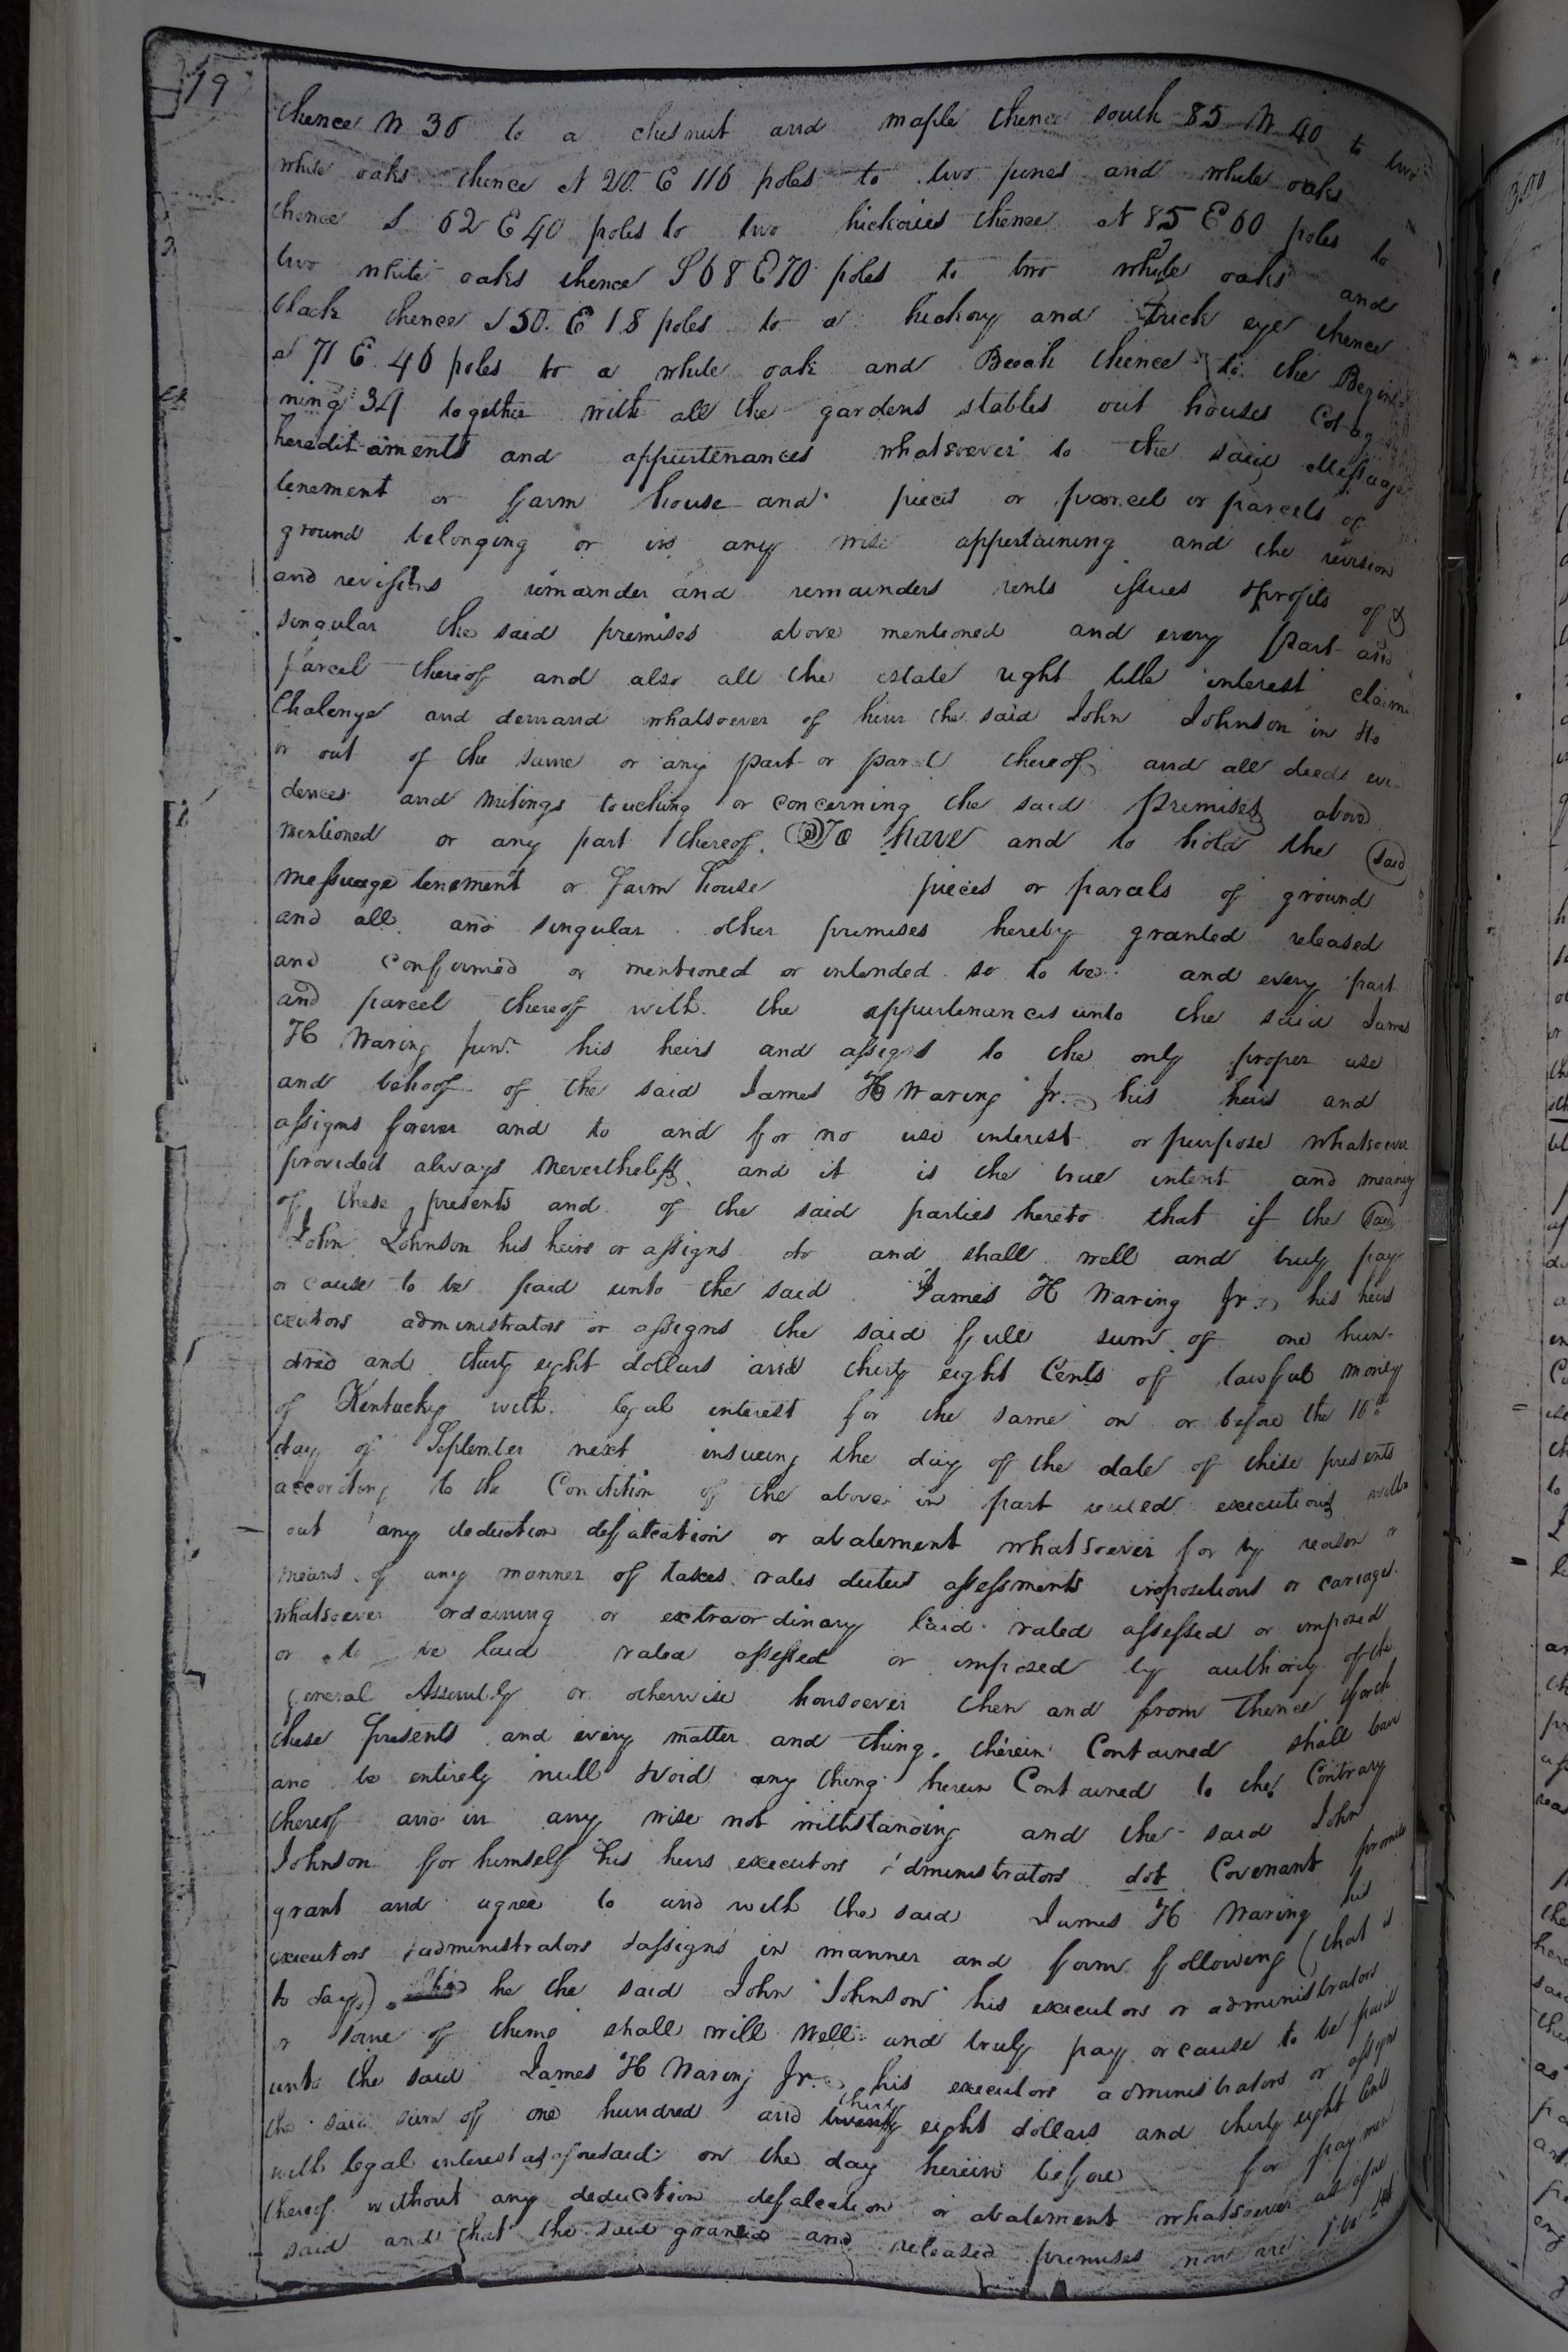 19
thence N 30 to a chesnut and maple thence south 85 W 40 to two
white oaks thence N 20 E 116 poles to two pines and white oaks
thence S 62 E 40 poles to two hickories thence N 85 E 60 poles to
two white oaks thence S 68 E 70 poles to two white oaks and
black thence S 50 E 18 poles to a hickory and Buck eye thence
N 71 E 46 poles to a white oak and Beech thence to the Begin-
ning 34 together with all the gardens stables out houses
heredit-aments and appurtenances whatsoever to the said Messuage
tenement or farm house and pieces or parcel or parcels of
ground belonging or in any wise appertaining and the revision
and revisions remainder and remainders rents issues & profits of &
singular the said premises above mentioned and every part and
parcel thereof and also all the estate right title interest claim
Chalenge and demand whatsoever of him the said John Johnson in to
or out of the same or any part or parcel thereof and all deeds evi-
dences and writings touching or concerning the said Premises above
mentioned or any part thereof. To have and to hold the said
messuage tenement or farm house pieces or parcels of ground
and all and singular other premises hereby granted released
and confirmed or mentioned or intended so to be and every part
and parcel thereof with the appurtenances unto the said James
H Waring junr. his heirs and assigns to the only proper use
and behoof of the said James H Waring Jr. his heirs and
assigns forever and to and for no use interest or purpose whatsoever
provided always nevertheless and it is the true intent and meaning
of these presents and of the said parties hereto that if the said
John Johnson his heirs or assigns do and shall well and truly pay
or cause to be paid unto the said James H Waring Jr. his heirs
exutors administrators or assigns the said full sum of one hun-
dred and thirty eight dollars and thirty eight Cents of lawful money
of Kentucky with legal interest for the same on or before the 16th
day of September next insueing the day of the date of these presents
according to the Condition of the above in part recited executions with
out any deduction defalcation or abatement whatsoever for by reason or
means of any manner of taxes rates duties assessments impositions or cariages
whatsoever ordaining or extraordinary laid rated assessed or imposed
or to be laid rated assessed or imposed by authority of the
General Assembly or otherwise housoever then and from thence forth
these presents and every matter and thing therein Contained shall
and be entirely null & void any thing herein Contained to the Contrary
thereof and in any wise not withstanding and the said John
Johnson for himself his heirs executors administrators dot Covenant promis
grant and agree to and with the said James H Waring his
executors administrators & assigns in manner and form following (that is
to say) he the said John Johnson his executors or administrators
or some of them shall will well and truly pay or cause to be paid
unto the said James H Waring Jr. his executors administrators or assigns
thirty
the said sum of one hundred and twenty eight dollars and thirty eight Cents
with legal interest as aforesaid on the day herein before for paymen
thereof without any deduction defalcation or abatement whatsoever as afore
said and that the said granted and released premises now are